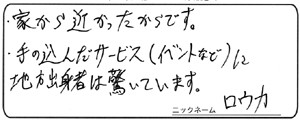 ・家から近かったからです。
・手の込んだサービス(イベントなど)に
地方出身者は驚いています。
ニックネーム ロウカ